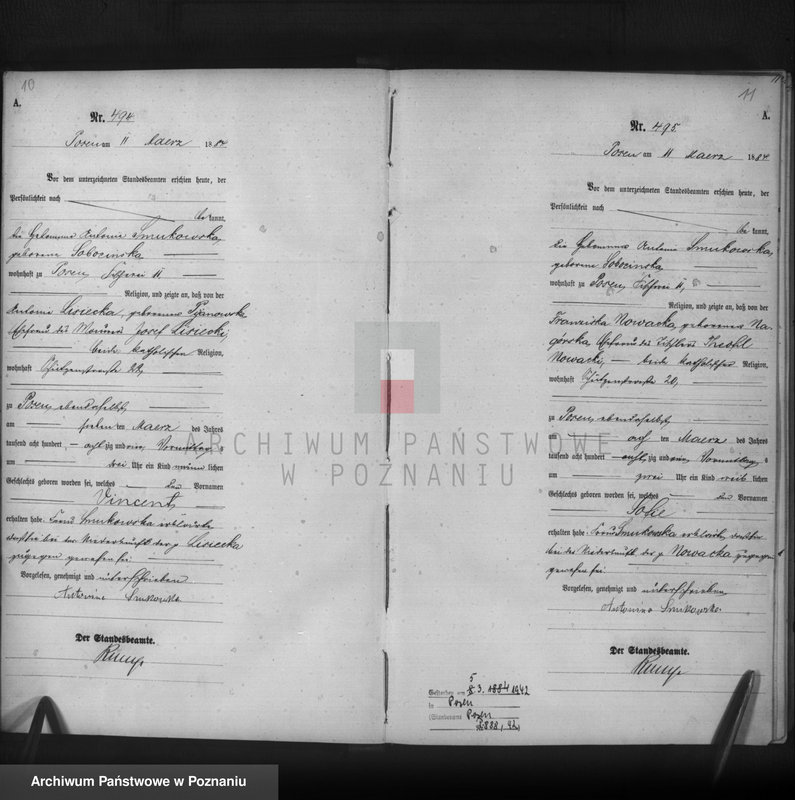 10
A.
Nr. 494.
Posen am 11 Maerz 1884
Vor dem unterzeichneten Standesbeamten erschien heute, der
Persönlichkeit nach
be kannt,
die Hebamme Antonie Smukowska,
geborene Sobocinska
wohnhaft zu Posen, Fischerei 11
Religion, und zeigte an, daß von der
Antonie Lisiecka, geborenen
Ehefrau des Maurers Josef Lisiecki,
beide katholischer Religion,
wohnhaft Schützenstraße 22,
zu Posen ebendaselbst,
am sieben ten Maerz des Jahres
tausend acht hundert achtzig und vier, Vormittags
um drei Uhr ein Kind männ lichen
Geschlechts geboren worden sei, welches den Vornamen
Vincent
erhalten habe. Frau Smukowska erklärte
daß sie bei der Niederkunft der p. Lisiecka
zugegen gewesen sei
Vorgelesen, genehmigt und unterschrieben
Antonina Smukowska
Der Standesbeamte.
11
A.
Nr. 495.
Posen am 11 Maerz 1884
Vor dem unterzeichneten Standesbeamten erschien heute, der
Persönlichkeit nach
be kannt,
die Hebamme Antonie Smukowska,
geborene Sobocinska
wohnhaft zu Posen, Fischerei 11,
Religion, und zeigte an, daß von der
Franziska Nowacka, geborenen Na-
górska, Ehefrau des Tischlers Theofil
Nowacki, beide katholischer Religion,
wohnhaft Schützenstraße 20,
zu Posen ebendaselbst
am acht ten Maerz des Jahres
tausend acht hundert achtzig und vier, Vormittags
um zwei Uhr ein Kind weib lichen
Geschlechts geboren worden sei, welches den Vornamen
Sofie
erhalten habe. Frau Smukowska erklärte, daß sie
bei der Niederkunft der p. Nowacka zugegen
gewesen sei
Vorgelesen, genehmigt und unterschrieben
Antonina Smukowska
Der Standesbeamte.
Gestorben am 5. 3. 1942
in Posen
(Standesamt Posen
888/42)
ARCHIWUM PAŃSTWOWE
W POZNANIU
Archiwum Państwowe w Poznaniu